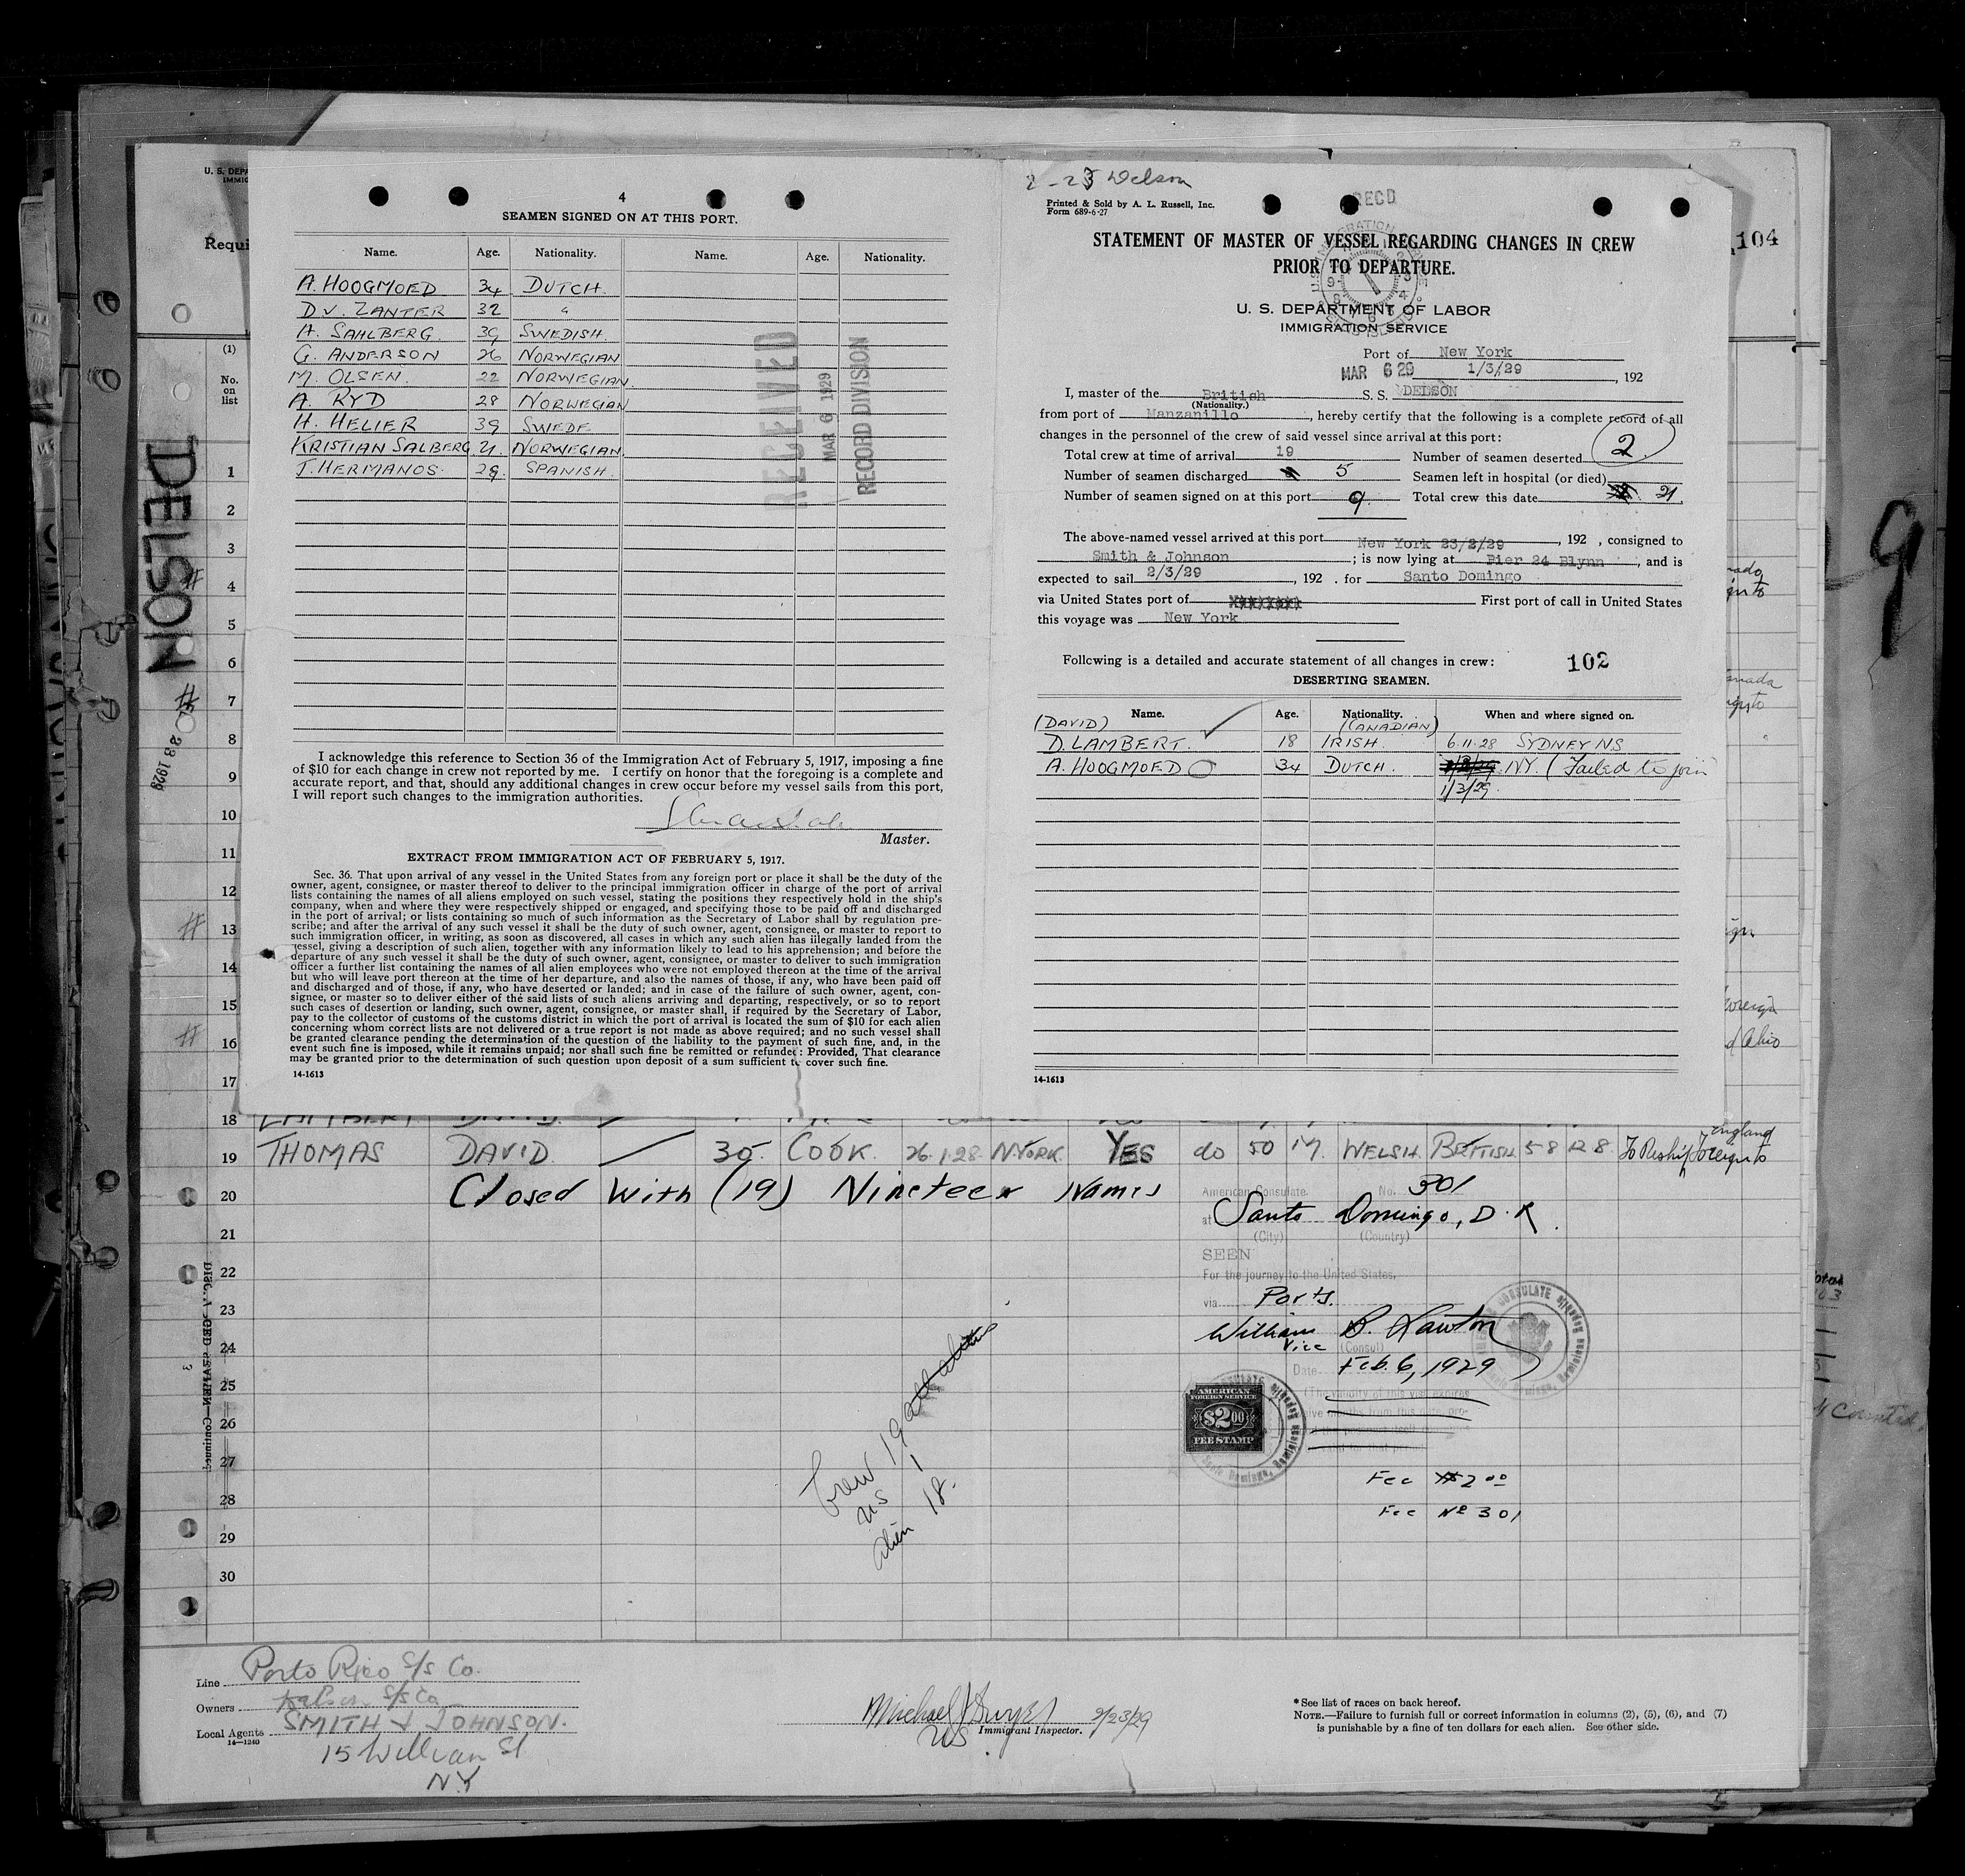 U. S. DEPA
IMMIG
Requi
(1)
No.
on
list
DELSON
4
SEAMEN SIGNED ON AT THIS PORT.
Name. Age. Nationality. Name. Age. Nationality.
A. HOOGMOED 34 DUTCH.
D.V. ZANTER 32 "
A. SAHLBERG. 39 SWEDISH.
G. ANDERSON 26 NORWEGIAN
M. OLSEN. 22 NORWEGIAN.
A. RYD 28 NORWEGIAN
H. HELIER 39 SWEDE
KRISTIAN SALBERG 21. NORWEGIAN
J. HERMANOS. 29. SPANISH.
RECEIVED
MAR 6 1929
RECORD DIVISION
I acknowledge this reference to Section 36 of the Immigration Act of February 5, 1917, imposing a fine
of $10 for each change in crew not reported by me. I certify on honor that the foregoing is a complete and
accurate report, and that, should any additional changes in crew occur before my vessel sails from this port,
I will report such changes to the immigration authorities.
Master.
EXTRACT FROM IMMIGRATION ACT OF FEBRUARY 5, 1917.
Sec. 36. That upon arrival of any vessel in the United States from any foreign port or place it shall be the duty of the
owner, agent, consignee, or master thereof to deliver to the principal immigration officer in charge of the port of arrival
lists containing the names of all aliens employed on such vessel, stating the positions they respectively hold in the ship's
company, when and where they were respectively shipped or engaged, and specifying those to be paid off and discharged
in the port of arrival; or lists containing so much of such information as the Secretary of Labor shall by regulation pre-
scribe; and after the arrival of any such vessel it shall be the duty of such owner, agent, consignee, or master to report to
such immigration officer, in writing, as soon as discovered, all cases in which any such alien has illegally landed from the
vessel, giving a description of such alien, together with any information likely to lead to his apprehension; and before the
departure of any such vessel it shall be the duty of such owner, agent, consignee, or master to deliver to such immigration
officer a further list containing the names of all alien employees who were not employed thereon at the time of the arrival
but who will leave port thereon at the time of her departure, and also the names of those, if any, who have been paid off
and discharged and of those, if any, who have deserted or landed; and in case of the failure of such owner, agent, con-
signee, or master so to deliver either of the said lists of such aliens arriving and departing, respectively, or so to report
such cases of desertion or landing, such owner, agent, consignee, or master shall, if required by the Secretary of Labor,
pay to the collector of customs of the customs district in which the port of arrival is located the sum of $10 for each alien
concerning whom correct lists are not delivered or a true report is not made as above required; and no such vessel shall
be granted clearance pending the determination of the question of the liability to the payment of such fine, and, in the
event such fine is imposed, while it remains unpaid; nor shall such fine be remitted or refunded: Provided, That clearance
may be granted prior to the determination of such question upon deposit of a sum sufficient to cover such fine.
14-1613
2-23 Delson
Printed & Sold by A. L. Russell, Inc.
Form 689-6-27
RECD
STATEMENT OF MASTER OF VESSEL REGARDING CHANGES IN CREW
PRIOR TO DEPARTURE.
U. S. DEPARTMENT OF LABOR
IMMIGRATION SERVICE
Port of New York
MAR 6 29 1/3/29, 192
I, master of the British S. S. DELSON
(Nationality.)
from port of Manzanillo, hereby certify that the following is a complete record of all
changes in the personnel of the crew of said vessel since arrival at this port:
Total crew at time of arrival 19 Number of seamen deserted 2
Number of seamen discharged 5 Seamen left in hospital (or died)
Number of seamen signed on at this port 9. Total crew this date 21.
The above-named vessel arrived at this port New York 23/2/29, 192 , consigned to
Smith & Johnson; is now lying at Pier 24 Blynn, and is
expected to sail 2/3/29, 192 . for Santo Domingo
via United States port of First port of call in United States
this voyage was New York
Following is a detailed and accurate statement of all changes in crew: 102
DESERTING SEAMEN.
Name. Age. Nationality. When and where signed on.
(DAVID) (CANADIAN)
D. LAMBERT. 18 IRISH. 6.11.28 SYDNEY NS
A. HOOGMOED 34 DUTCH. NY. (Failed to join
1/3/29.
14-1613
104
9
1
2
3
4
5
6
7
8
9
10
11
12
13
14
15
16
17
18 LAMBERT DAVID
19 THOMAS DAVID 30. COOK. 26.1.28 N.YORK. YES do 50 M. WELSH. BRITISH 5 8 128. To Reship Foreign to England
20 Closed With (19) Nineteen Names
21
22
23
24
25
26
27
28
29
30
American Consulate. No. 301
at Santo Domingo, D.R.
(City) (Country)
SEEN
For the journey to the United States,
via Ports.
William B. Lawton
Vice (Consul)
Date Feb. 6, 1929
AMERICAN
FOREIGN SERVICE
$2.00
FEE STAMP
Fee $2.00
Fee No 301
Crew 19
US 1
Alien 18.
Line Porto Rico S/s Co.
Owners S/s Co
Local Agents SMITH & JOHNSON.
14—1240
15 William St
N.Y
Michael J Dwyer 2/23/29
US Immigrant Inspector.
* See list of races on back hereof.
NOTE.—Failure to furnish full or correct information in columns (2), (5), (6), and (7)
is punishable by a fine of ten dollars for each alien. See other side.